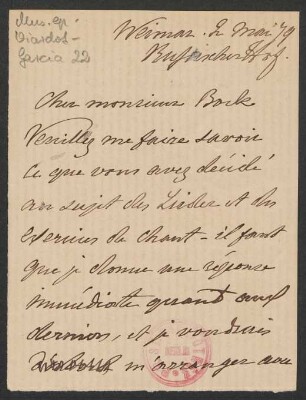 Mus. ep.
Viardot-
Garcia 22
Weimar. 2 Mai 79
Cher monsieur Bock
Veuillez me faire savoir
ce que vous avez décidé
au sujet des Lieder et des
exercices de chant - il faut
que je donne une réponse
immédiate quant aux
derniers, et je voudrais
m'arranger avec